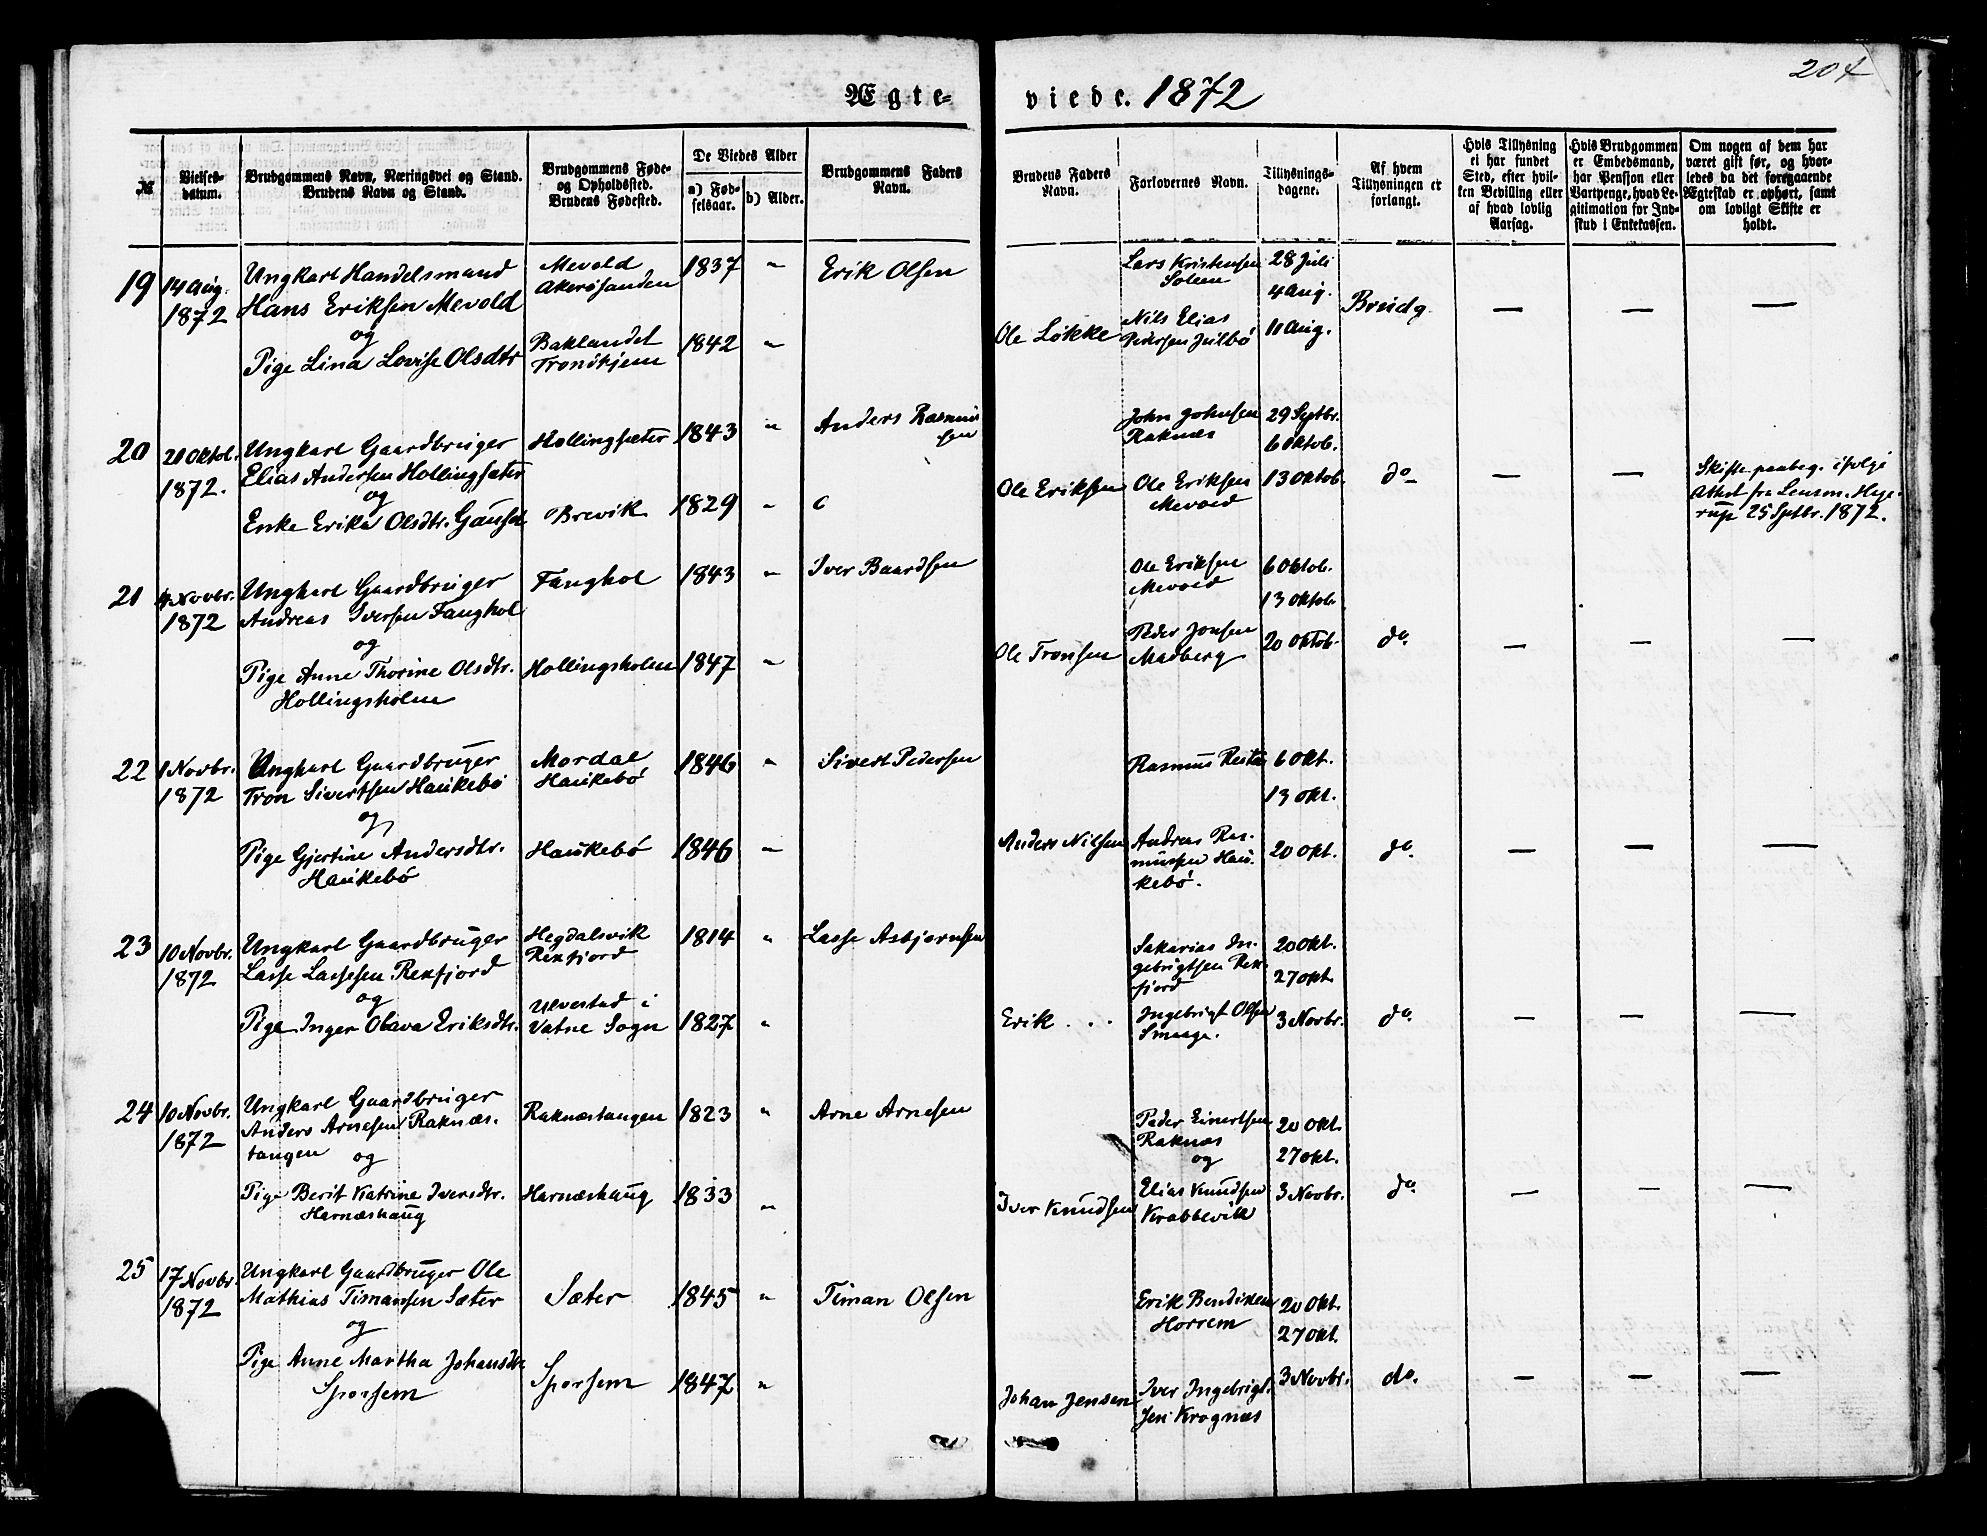 204
Ægte-
viede. 1872
№
Vielses-
datum.
Brudgommens Navn, Næringsvei og Stand.
Brudens Navn og Stand.
Brudgommens Føde-
og Opholdssted.
Brudens Fødested.
De Viedes Alder
a) Fød-
selsaar.
b) Alder.
Brudgommens Faders
Navn.
Brudens Faders
Navn.
Forlovernes Navn.
Tillysnings-
dagene.
Af hvem
Tillysningen er
forlangt.
Hvis Tillysning
ei har fundet
Sted, efter hvil-
ken Bevilling eller
af hvad lovlig
Aarsag.
Hvis Brudgommen
er Embedsmand,
har Pension eller
Vartpenge, hvad Le-
gitimation for Ind-
skud i Enkekassen.
Om nogen af dem har
været gift før, og hvor-
ledes da det foregaaende
Ægteskab er ophørt, samt
om lovligt Skifte er
holdt.
19
14 Aug.
1872
Ungkarl Handelsmand
Hans Eriksen Mevold
og
Pige Lina Lovise Olsdtr
Mevold
Akerøsanden
Baklandet
Trondhjem
1837 "
1842 "
Erik Olsen
Ole Løkke
Lars Kristensen
Solem
Nils Elias
Pedersen Julbø
28 Juli
4 Aug.
11 Aug.
Brudg.
— — —
20
21 Oktob.
1872.
Ungkarl Gaardbruger
Elias Andersen Hollingsæter
og
Enke Erika Olsdtr. Gauset
Hollingsæter
Brevik
1843 "
1829 "
Anders Rasmus
sen
Ole Eriksen
John Johnsen
Raknæs
Ole Eriksen
Mevold
29 Septbr.
6 Oktob.
13 Oktob.
do
— —
Skifte paabeg. ifølge
Attest fra Lensm. Heye-
rup 25 Sptbr. 1872.
21
4 Novbr.
1872
Ungkarl Gaardbruger
Andreas Iversen Tanghol
og
Pige Anne Thorine Olsdtr.
Hollingsholm
Tanghol
Hollingsholm
1843 "
1847 "
Iver Baardsen
Ole Tronsen
Ole Eriksen
Mevold
Peder Jonsen
Madberg
6 Oktob.
13 Oktob.
20 Oktob.
do.
— — —
22
1 Novbr.
1872
Ungkarl Gaardbruger
Tron Sivertsen Haukebø
og
Pige Gjertine Andersdtr.
Haukebø
Mordal
Haukebø
Haukebø
1846 "
1846 "
Sivert Pedersen
Anders Nilsen
Rasmus
Andreas Ras-
mussen Hau-
kebø.
6 Okt.
13 Okt.
20 Okt.
do.
— — —
23
10 Novbr.
1872
Ungkarl Gaardbruger
Lasse Lassesen Rekfjord
og
Pige Inger Olava Eriksdtr.
Hegdalsvik
Rekfjord
Ulvestad i
Vatne Sogn
1814 "
1827 "
Lasse Asbjørnsen
Erik . . .
Sakarias In-
gebrigtsen Rek-
fjord
Ingebrigt Olsen
Smaage.
20 Okt.
27 Okt.
3 Novbr.
do.
— — —
24
10 Novbr.
1872
Ungkarl Gaardbruger
Anders Arnesen Raknæs-
tangen og
Pige Berit Katrine Iversdtr.
Harnæshaug
Raknæstangen
Harnæshaug
1823 "
1833 "
Arne Arnesen
Iver Knudsen
Peder Einertsen
Raknæs
og
Elias Knudsen
Krabbevik
20 Okt.
27 Okt.
3 Novbr.
do.
— — —
25
17 Novbr.
1872
Ungkarl Gaardbruger Ole
Mathias Timansen Sæter
og
Pige Anne Martha Johansdtr
Sporsem
Sæter
Sporsem
1845 "
1847 "
Timan Olsen
Johan Jensen
Erik Bendiksen
Horrem
Iver Ingebrigt-
sen Krognæs
20 Okt.
27 Okt.
3 Novbr.
do.
— — —